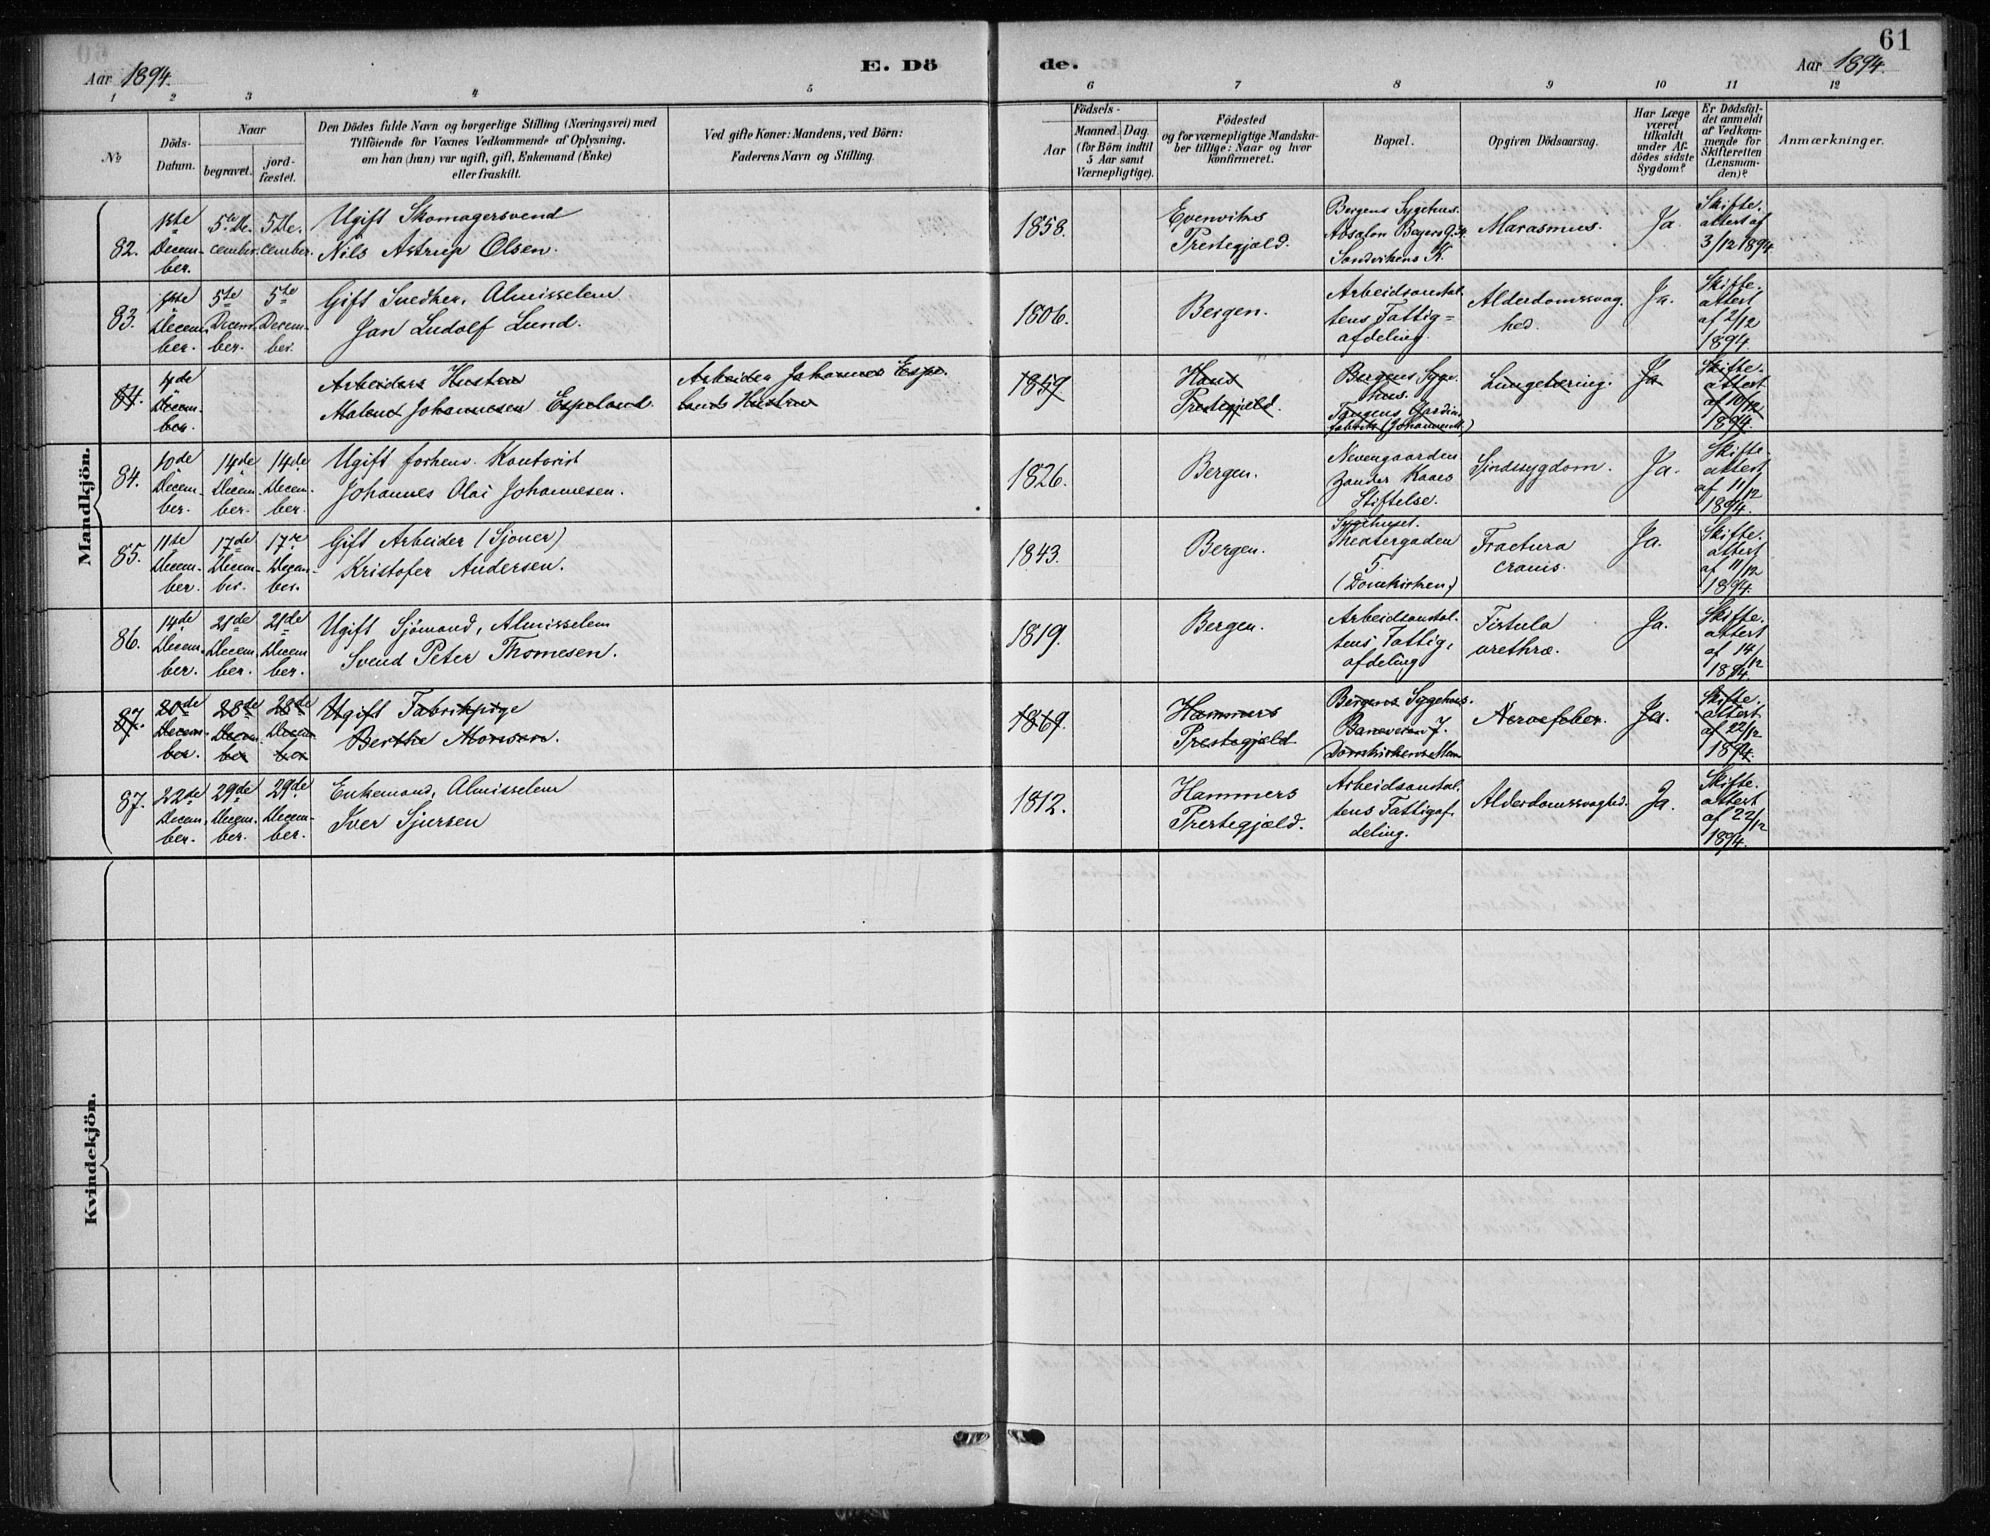 61
Aar 1894.
E. Dö
de.
Aar 1894.
1 2 3 4 5 6 7 8 9 10 11 12
No
Döds-
Datum.
Naar
begravet.
jord-
fæstet.
Den Dödes fulde Navn og borgerlige Stilling (Næringsvei) med
Tilföiende for Voxnes Vedkommende af Oplysning,
om han (hun) var ugift, gift, Enkemand (Enke)
eller fraskilt.
Ved gifte Koner: Mandens, ved Börn:
Faderens Navn og Stilling.
Födsels-
Aar
Maaned. Dag.
(for Börn indtil
5 Aar samt
Værnepligtige).
Födested
og for værnepligtige Mandska-
ber tillige: Naar og hvor
konfirmeret.
Bopæl.
Opgiven Dödsaarsag.
Har Læge
været
tilkaldt
under Af-
dödes sidste
Sygdom?
Er Dödsfal-
det anmeldt
af Vedkom-
mende for
Skifteretten
(Lensman-
den)?
Anmærkninger.
Mandkjön.
82.
1ste
Decem-
ber.
5te De-
cember.
5 De-
cember.
Ugift Skomagersvend
Nils Astrup Olsen.
1858.
Evenviks
Prestegjæld.
Bergens Sygehus.
Absalon Beyers G.
Sandvikens K.
Marasmus.
Ja.
Skifte-
attest af
3/12 1894.
83.
1ste
Decem-
ber.
5te
Decem-
ber.
5te
Decem-
ber.
Gift Snedker, Almisselem
Jan Ludolf Lund.
1806.
Bergen.
Arbeidsanstal-
tens Fattig=
afdeling.
Alderdomssvag-
hed.
Ja.
Skifte-
attest
af 2/12
1894.
84.
4de
Decem-
ber.
Arbeiders Hustru
Malene Johannesen Espeland.
Arbeider Johannes Espe-
lands Hustru
1859
Haus
Prestegjæld.
Bergens Syge-
hus.
Fabrik (Johannesk.)
Ja
Skifte-
attest
af 10/12
1894.
84.
10de
Decem-
ber.
14de
Decem-
ber.
14de
Decem-
ber.
Ugift forhenv. Kontorist
Johannes Olai Johannesen.
1826.
Bergen.
Nevengaarden
Zander Kaaes
Stiftelse.
Sindssygdom.
Ja.
Skifte-
attest
af 11/12
1894.
85.
11te
Decem-
ber.
17de
Decem-
ber.
17de
Decem-
ber.
Gift Arbeider (Sjouer)
Kristofer Andersen.
1843.
Bergen.
Sygehuset.
Theatergaden
5.
(Domkirken)
Fractura
cranis.
Ja.
Skifte-
attest
af 11/12
1894.
86.
14de
Decem-
ber.
21de
Decem-
ber.
21de
Decem-
ber.
Ugift Sjömand, Almisselem
Svend Peter Thomesen.
1819.
Bergen.
Arbeidsanstal-
tens Fattig-
afdeling
Fistula
urethræ.
Ja.
Skifte-
attest
af 14/12
1894.
87.
20de
Decem-
ber.
28de
Decem-
ber
28de
Decem-
ber
Ugift Fabrikpige
Berthe Monsen.
1869.
Hammers
Prestegjæld
Bergens Sygehus.
Baneveien 7.
Domkirkens Men
Nervefeber.
Ja.
Skifte-
attest
af 22/12
1894.
87.
22de
Decem-
ber.
29de
Decem-
ber.
29de
Decem-
ber.
Enkemand, Almisselem
Iver Sjursen
1812.
Hammers
Prestegjæld.
Arbeidsanstal-
tens Fattigaf-
deling.
Alderdomssvaghed.
Ja.
Skifte-
attest
af 22/12
1894.
Kvindekjön.